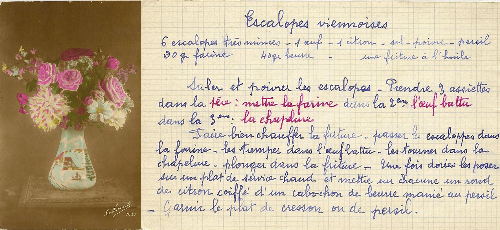 Escalopes viennoises
6 escalopes très minces - 1 œuf - 1 citron - sel - poivre - persil
30g farine 40gr beurre - une friture à l'huile
Saler et poivrer les escalopes - Prendre 3 assiettes
dans la 1ère : mettre la farine dans la 2ème l'œuf battu
dans la 3ème : la chapelure
Faire bien chauffer la friture - passer les escaloppes dans
la farine - les tremper dans l'œuf battu - les tourner dans la
chapelure - plonger dans la friture - Une fois dorées les poser
sur un plat de service chaud et mettre sur chacune un rond
de citron coiffé d'un cabochon de beurre manié au persil
- Garnir le plat de cresson ou de persil.